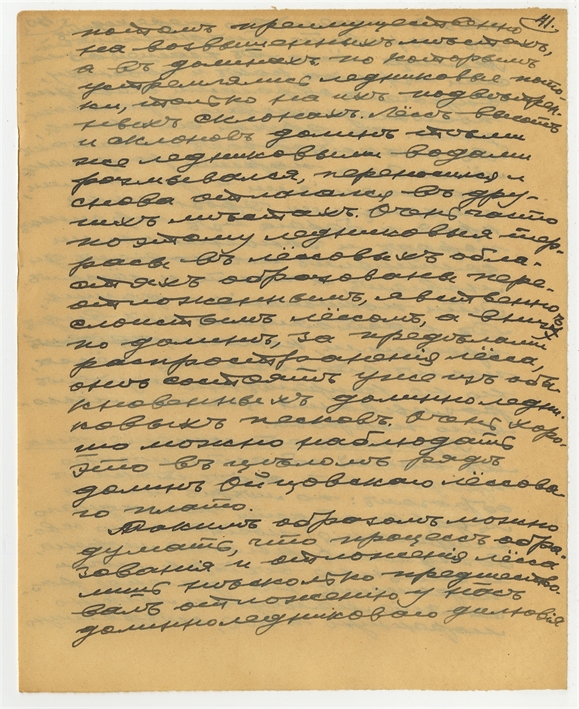 41.
потомъ преимущественно
на возвышенныхъ мѣстахъ,
а въ долинахъ по которымъ
устремлялись ледниковые пото-
ки, только на ихъ подвѣтрен-
ныхъ склонахъ. Лёсъ высотъ
и склоновъ долинъ тѣми
же ледниковыми водами
размывался, переносился и
снова отлагался въ дру-
гихъ мѣстахъ. Очень часто
поэтому ледниковыя тер-
расы въ лёссовыхъ обла-
стяхъ образованы пере-
отложеннымъ, явственно
слоистымъ лёссомъ, а внизъ
по долинѣ, за предѣлами
распространенія лёсса,
онѣ состоятъ уже изъ обы-
кновенныхъ долинноледни-
ковыхъ песковъ. Очень хоро-
шо можно наблюдать
это въ цѣломъ рядѣ
долинъ Ойцовскаго лёссова-
го плато.
Такимъ образомъ можно
думать, что процессъ обра-
зованія и отложенія лёсса
лишь нѣсколько предшество-
валъ отложенію у насъ
долинноледниковаго дилювія